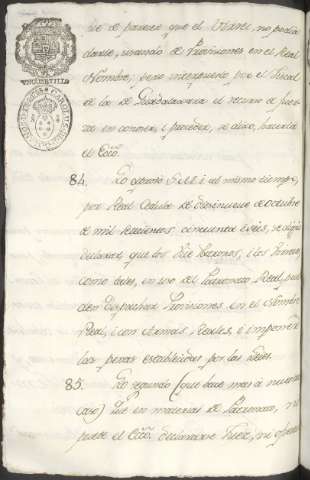 fue de parecer que el Virrei, no podia
darse, usando de Provisiones en el Real
Nombre, pero interpuesto por el Fiscal
de la de Guadalaxara el recurso de fuer-
za en conocer, i proceder, se dixo, hacerla
el Ecc̃o.
84. Lo aprobó S.M. i al mismo tiempo,
por Real Cedula de diezinueve de octubre
de mil setecientos cinquenta i seis, se dignó
declarar que los Vice Patronos, i los Virreies
como tales, en uso del Patronato Real, pue-
den Despachar Provisiones en el Nombre
Real, i con Armas Reales, é imponer
las penas establecidas por las Leies.
85. Lo segundo (que hace mas á nuestro
caso) Que en materias de Patronato, no
puede el Ecc̃o. declararse Juez, ni